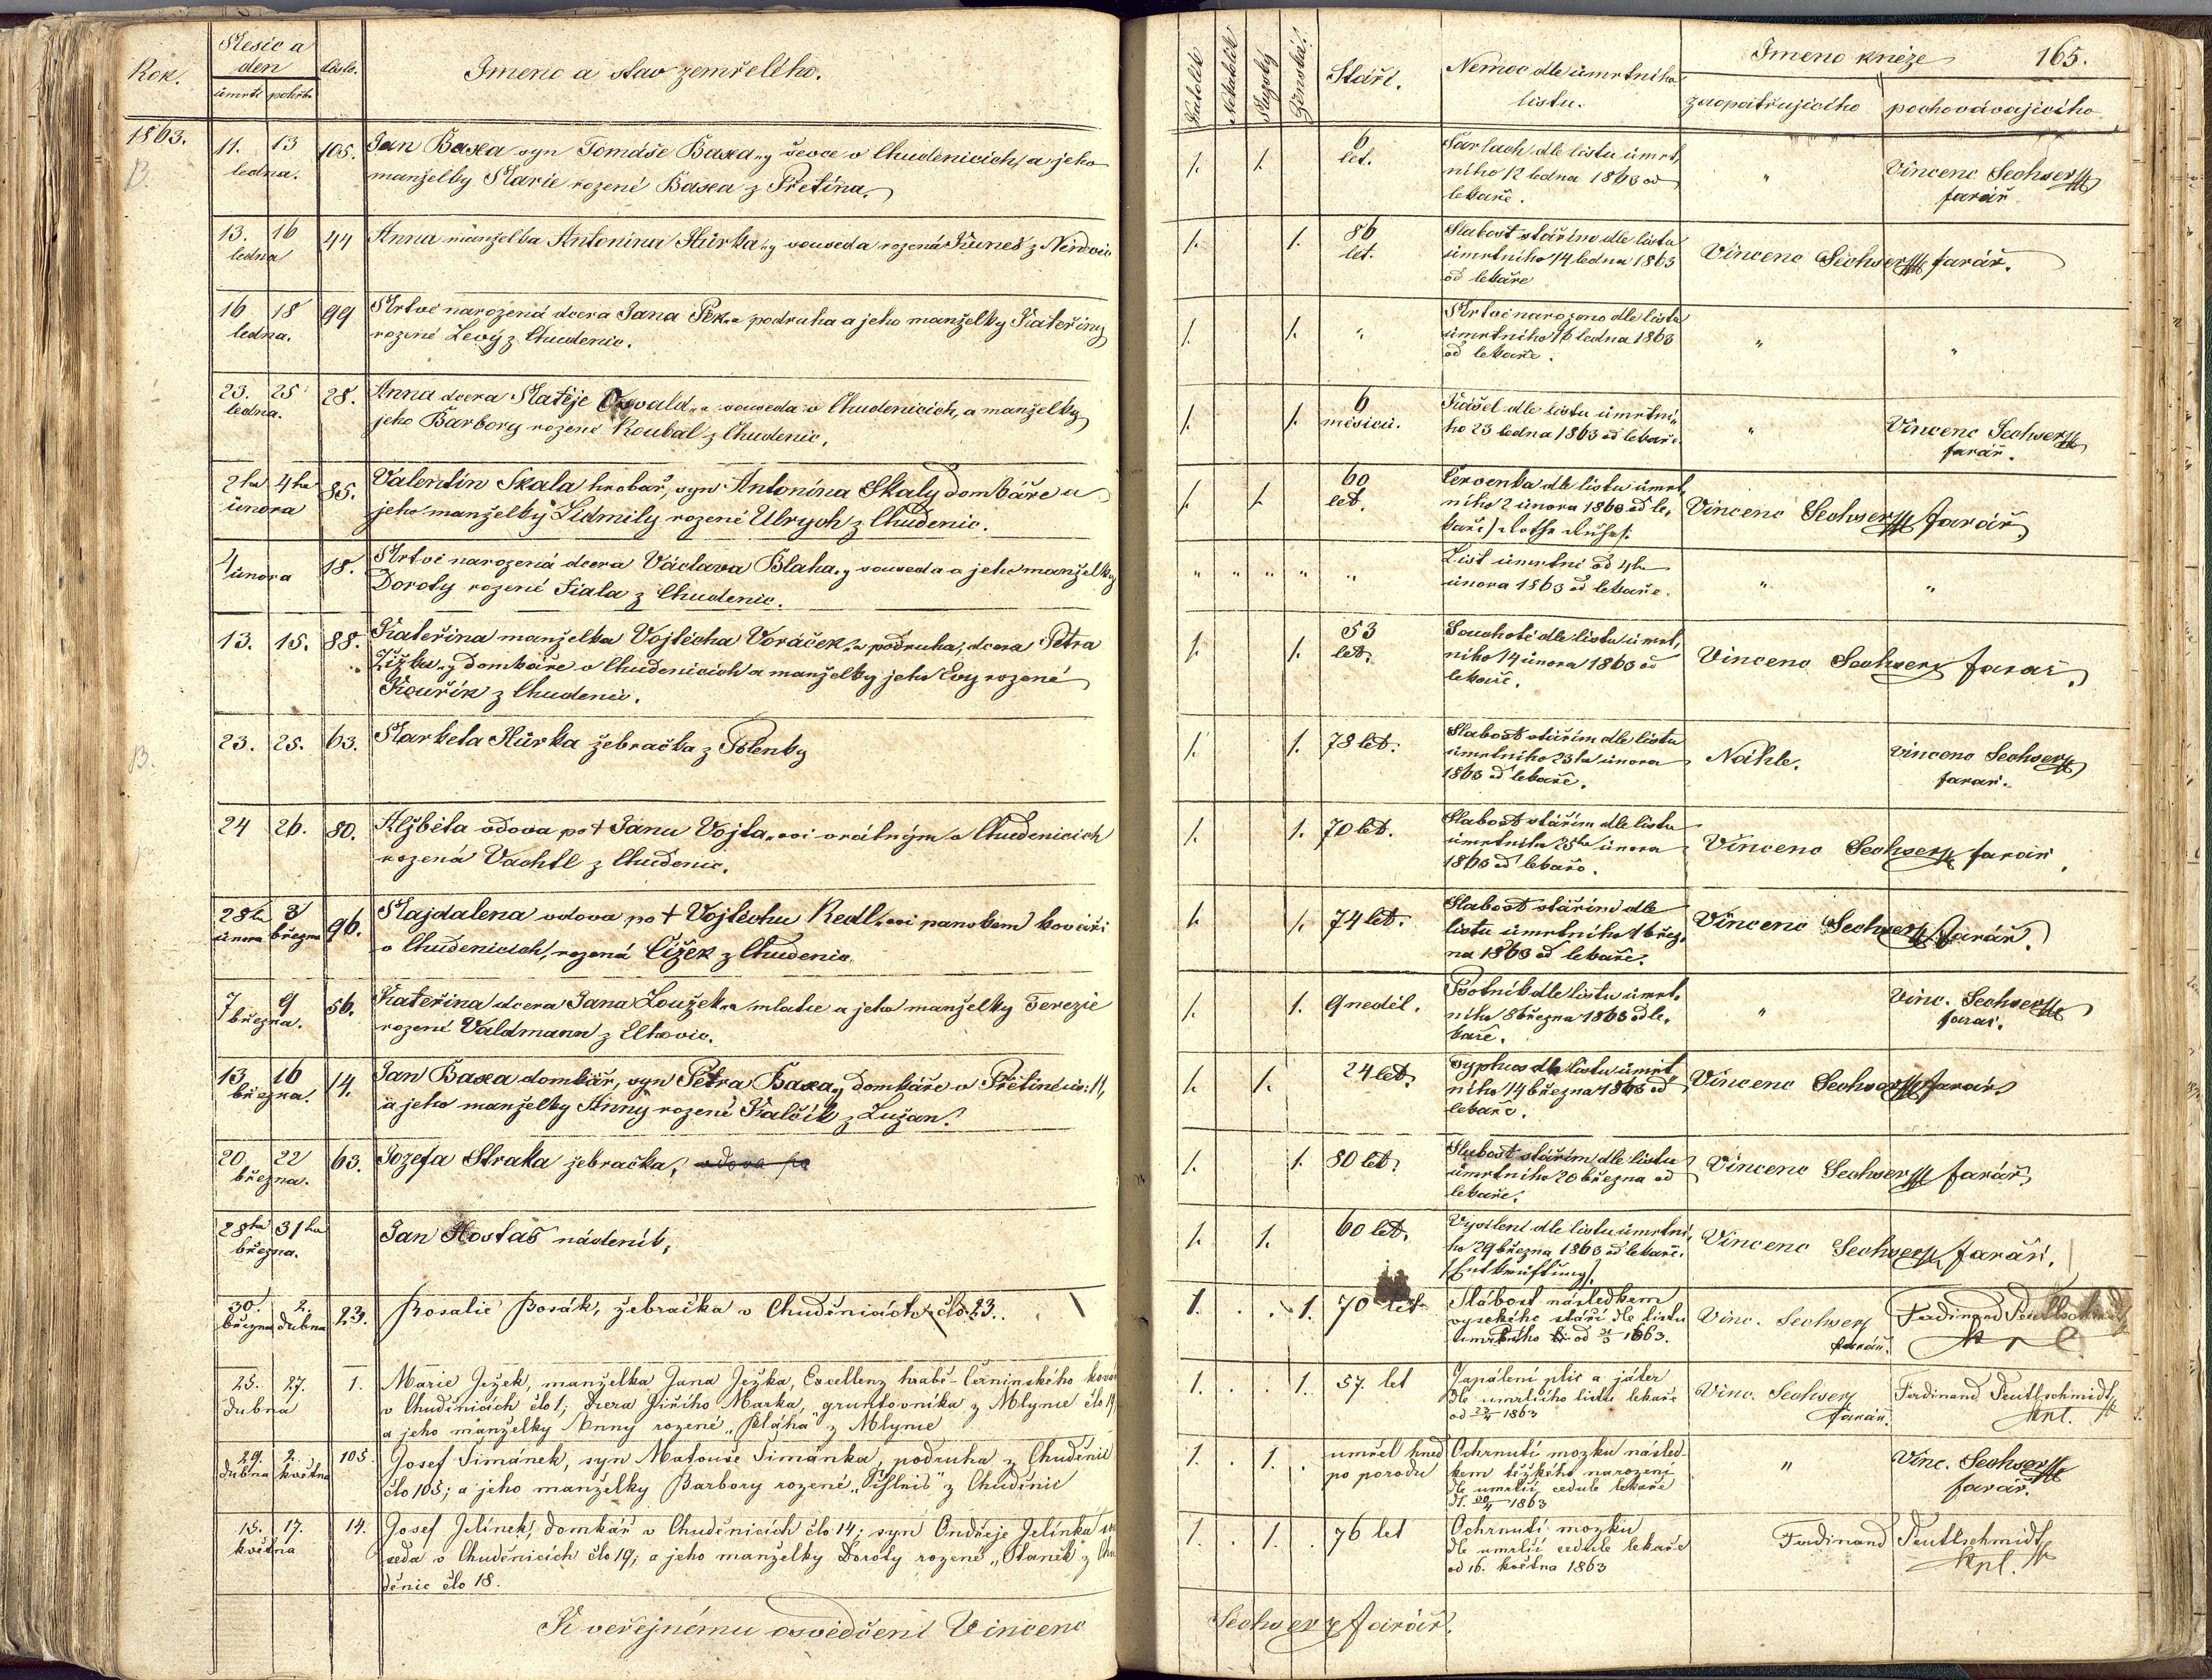 Rok.
Měsíc a
den
úmrtí pohřbu
Číslo.
Jmeno a stav zemřelého.
1863.
11. 13
ledna.
105.
Jan Baxa syn Tomáše Baxa„y ševce v Chudenicích, a jeho
manželky Marie rozené Baxa z Přetína.
13. 16
ledna
44
Anna manželka Antonína Hůrka„y souseda rozená Kuneš z
16 18
ledna.
99
Mrtvě narozená dcera Jana Pek„a podruha a jeho manželky Kateřiny
rozené Levý z Chudenic.
23. 25
ledna.
28.
Anna dcera Matěje Osvald„a souseda v Chudenicích, a manželky
jeho Barbory rozené Koubal z Chudenic.
2ha 4ha
února
85.
Valentin Skala hrobař, syn Antonína Skaly domkáře a
jeho manželky Lidmily rozené Ulrych z Chudenic.
4
února
18.
Mrtvě narozená dcera Václava Blaha„y souseda a jeho manželky
Doroty rozené Fiala z Chudenic.
13. 15.
88.
Kateřina manželka Vojtěcha Voráček„a podruha, dcera Petra
Žižka„y domkáře v Chudenicích a manželky jeho Evy rozené
Kouřík z Chudenic.
23. 25.
63.
Markéta Hůrka žebračka z Polenky
24 26.
80.
Alžběta vdova po † Janu Vojta„ovi vrátným v Chudenicích
rozená Vachtl z Chudenic.
28ha 3
února března
96.
Majdalena vdova po † Vojtěchu Redl„ovi panském kováři
v Chudenicích, rozená Čížek z Chudenic
7 9
března.
56.
Kateřina dcera Jana Loužek„a mlatce a jeho manželky Terezie
rozené Valdmann z Elhovic.
13. 16
března.
14.
Jan Baxa domkář, syn Petra Baxa„y domkáře v Přetíně čís: 11,
a jeho manželky Anny rozené Kalčík z Lužan.
20 22
března.
63.
Jozefa Straka žebračka, vdova po
28ha 31ha
března.
Jan Hostaš nádeník,
30. 2.
března dubna
23.
Rosalie Bosák, žebračka v Chuděnicích člo 23.
25. 27.
dubna
1.
Marie Ježek, manželka Jana Ježka, Excellenz hrabě-Černinského
v Chuděnicích člo 1; dcera Jiřího Marka, gruntovníka z Mlynce člo 19
a jeho manželky Anny rozené „Bláha" z Mlynce
29. 2.
dubna května
105.
Josef Šimánek, syn Matouše Šimánka, podruha z Chuděnic
člo 105; a jeho manželky Barbory rozené z Chuděnic
15. 17.
května
14.
Josef Jelínek, domkář v Chuděnicích člo 14; syn Ondřeje Jelínka
seda v Chuděnicích člo 19; a jeho manželky Doroty rozené „Staněk" z Chu
děnic člo 18.
K veřejnému osvědčení Vincenc
165.
Katolík
Nekatolík
Mužský
Ženská.
Stáří.
Nemoc dle úmrtního
listu.
Jmeno kněze
zaopatřujícího pochovávajícího
1. 1.
6
let.
Šarlach dle listu úmrt,
ního 12 ledna 1863 od
lekaře.
"
Vincenc Sechser
farář
1. 1.
86
let.
Slabost stářím dle listu
úmrtního 14 ledna 1863
od lekaře
Vincenc Sechser farář.
1. 1.
"
Mrtvě narozeno dle listu
úmrtního 16 ledna 1863
od lekaře.
" "
1. 1.
6
měsíců.
Kašel dle listu úmrtní„
ho 23 ledna 1863 od lekaře.
"
Vincenc Sechser
farář.
1. 1.
60
let.
Červenka dle listu úmrt„
ního 2 února 1863 od le„
kaře / Rothe Ruhr /.
Vincenc Sechser farář
" " " " "
List úmrtní od 4ho
února 1863 od lekaře.
" "
1. 1.
53
let.
Souchotě dle listu úmrt,
ního 14 února 1863 od
lekaře.
Vincenc Sechser farář.
1. 1. 78 let.
Slabost stářím dle listu
úmrtního 23ha února
1863 od lekaře.
Náhle.
Vincenc Sechser
farář.
1. 1. 70 let.
Slabost stářím dle listu
úmrtního 25ha února
1863 od lekaře.
Vincenc Sechser farář.
1. 1. 74 let.
Slabost stářím dle
listu úmrtního 1 břez„
na 1863 od lekaře.
Vincenc Sechser farář.
1. 1. 9 neděl.
Psotník dle listu úmrt„
ního 8 března 1863 od le„
kaře.
"
Vinc. Sechser
farář.
1. 1. 24 let.
Typhus dle listu úmrt
ního 14 března 1863 od
lekaře.
Vincenc Sechser farář
1. 1. 80 let.
Slabost stářím dle listu
úmrtního 20 března od
lekaře.
Vincenc Sechser farář
1. 1. 60 let.
Vysílení dle listu úmrtní,
ho 29 března 1863 od lekaře.
/ Entkräftung /.
Vincenc Sechser farář.
1. 1. 70 let
Slabost následkem
vysokého stáří dle listu
úmrtního od 31/3 1863.
Vinc. Sechser
farář.
Ferdinand Teutlschmidt
1. 1. 57. let
Zapálení plic a játer
dle umrlčího listu lekaře
od 25/4 1863
Vinc. Sechser
farář.
Ferdinand Teutlschmidt
kpl.
1. 1.
umřel hned
po porodu
Ochrnutí mozku násled-
kem těžkého narození
dle umrlčí cedule lekaře
dt. 30/4 1863
"
Vinc. Sechser
farář.
1. 1. 76 let
Ochrnutí mozku
dle umrlčí cedule lekaře
od 16. května 1863
Ferdinand Teutlschmidt
kpl.
Sechser farář.